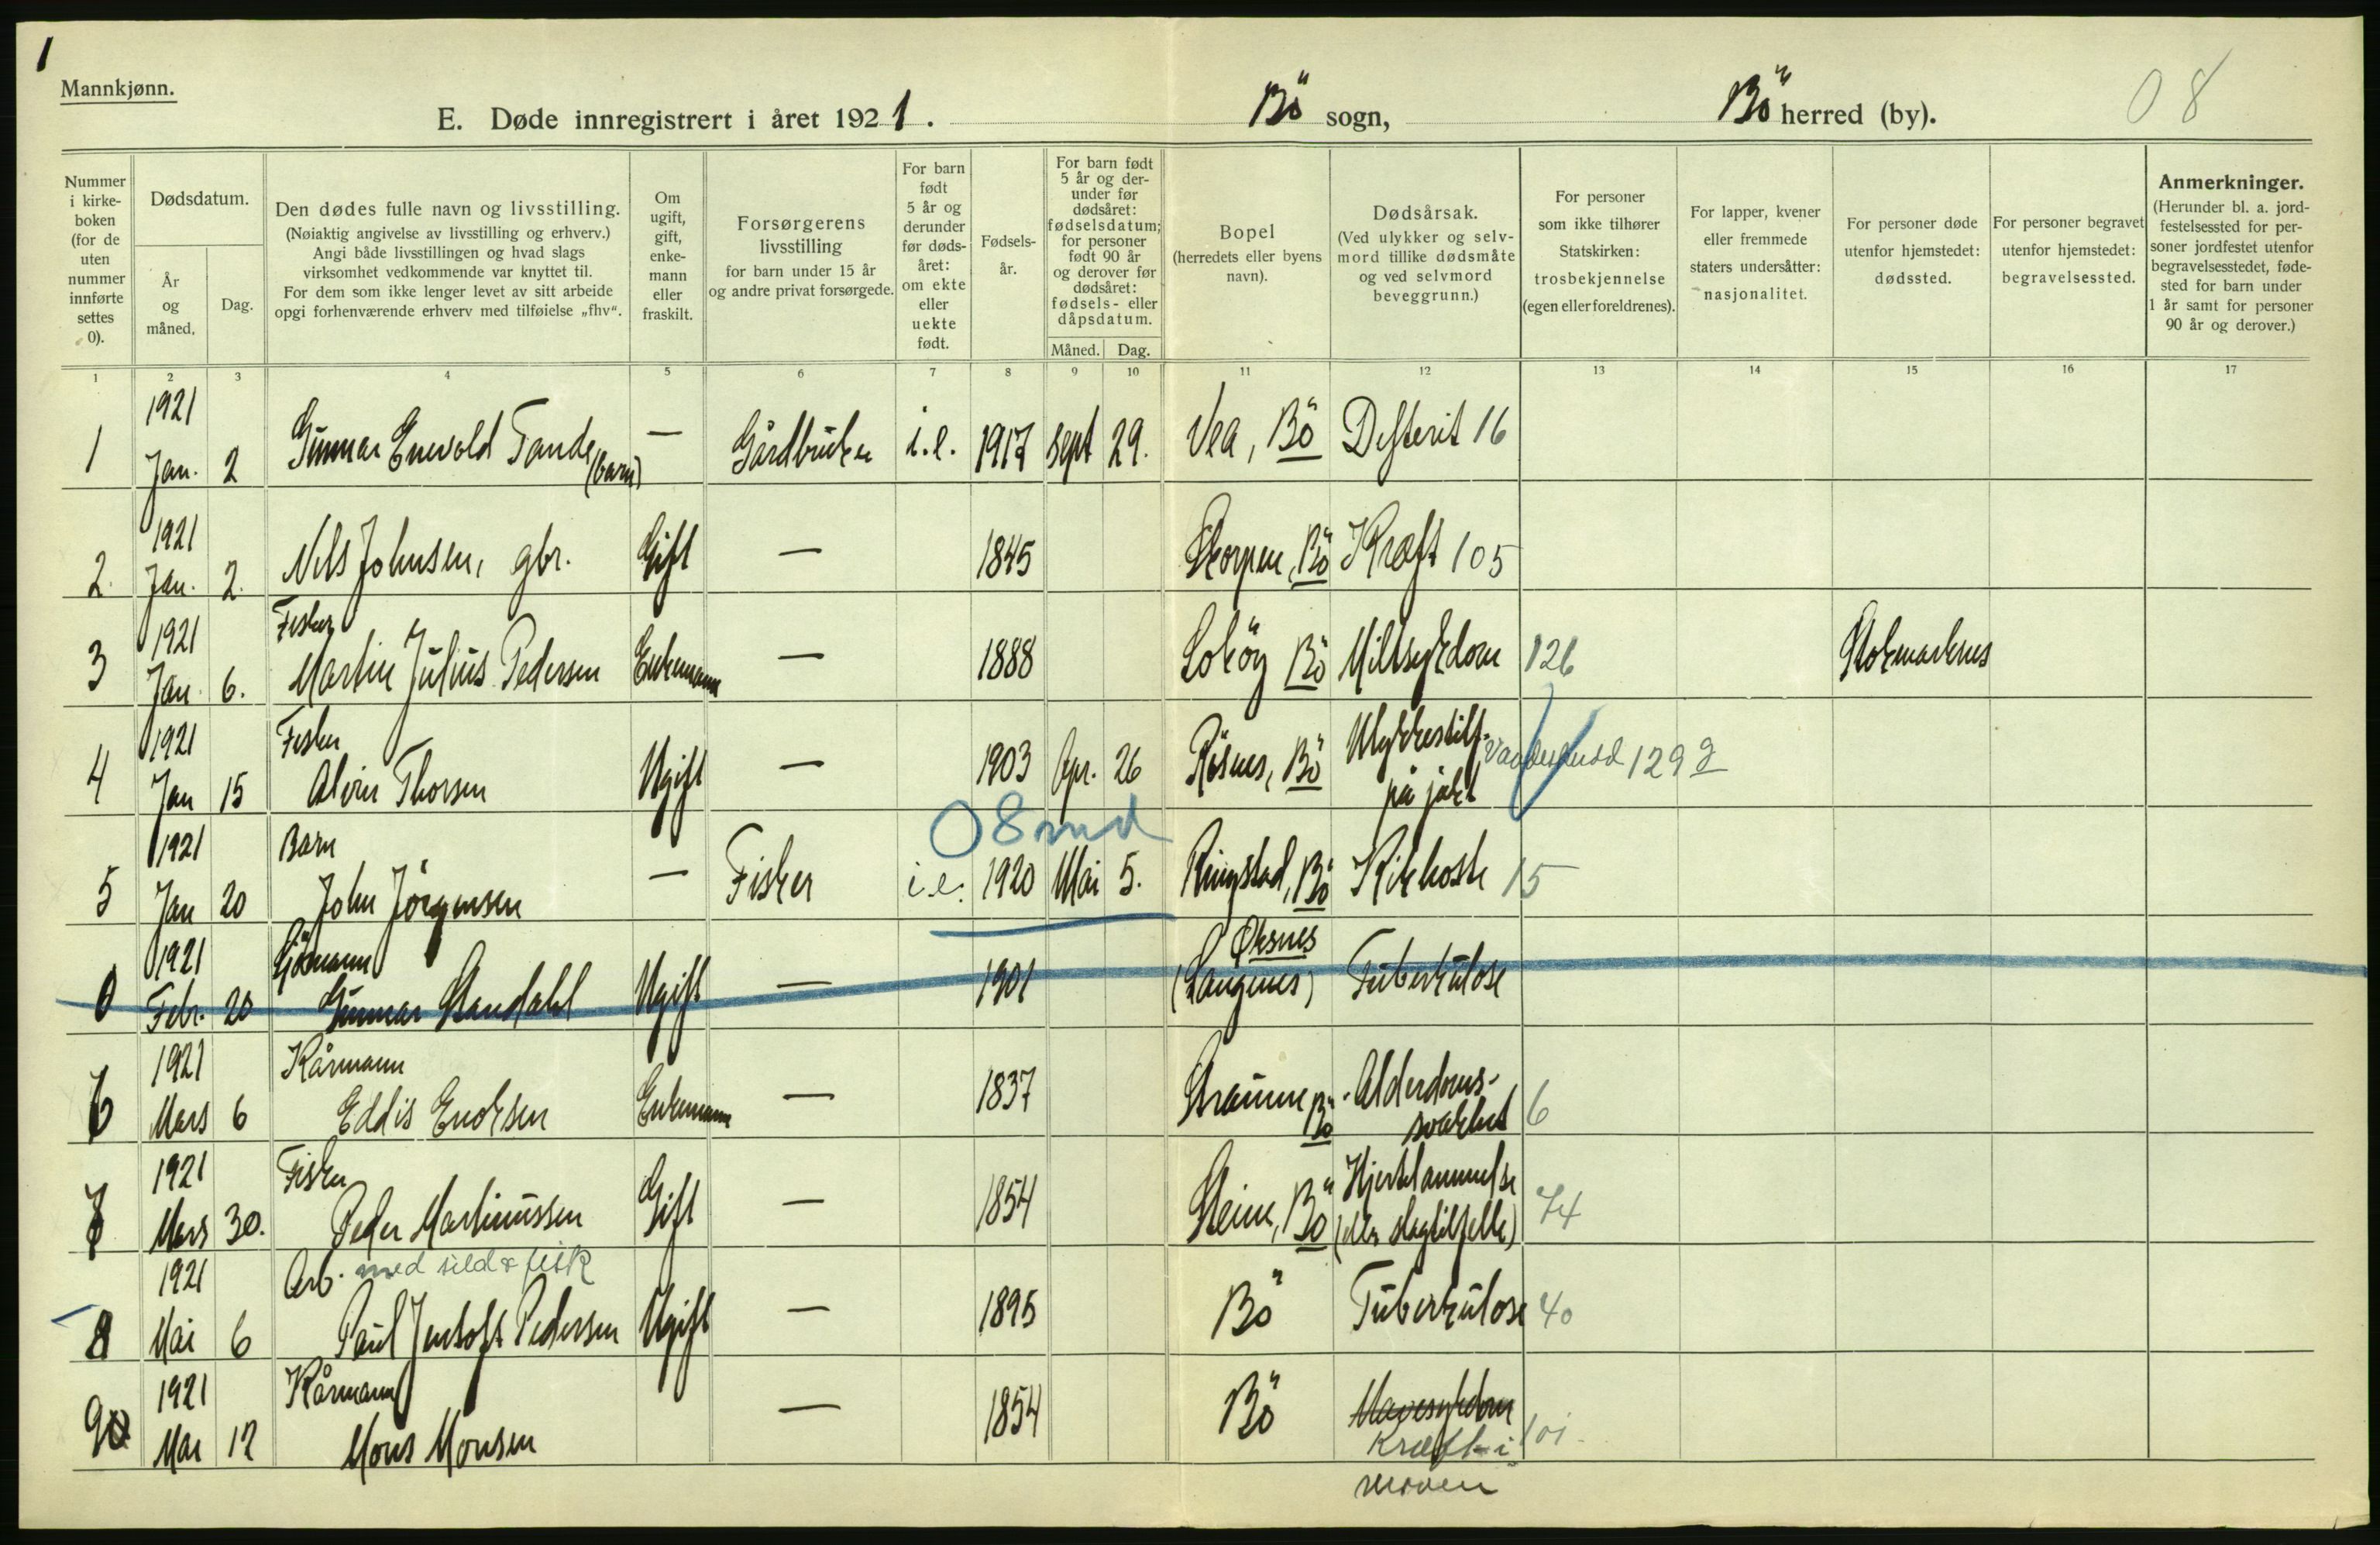 1
Mannkjønn.
E. Døde innregistrert i året 1921.
Bö sogn,
Bö herred (by).
08
Nummer i kirke- boken (for de uten nummer innførte settes 0).
Dødsdatum.
År og måned.
Dag.
Den dødes fulle navn og livsstilling.
(Nøiaktig angivelse av livsstilling og erhverv.)
Angi både livsstillingen og hvad slags
virksomhet vedkommende var knyttet til.
For dem som ikke lenger levet av sitt arbeide
opgi forhenværende erhverv med tilføielse „fhv“.
Om ugift, gift, enke- mann eller fraskilt.
Forsørgerens
livsstilling
for barn under 15 år
og andre privat forsørgede.
For barn født 5 år og derunder før døds- året: om ekte eller uekte født.
Fødsels- år.
For barn født 5 år og der- under før dødsåret: fødselsdatum; for personer født 90 år og derover før dødsåret: fødsels- eller dåpsdatum.
Måned. Dag.
Bopel
(herredets eller byens
navn).
Dødsårsak.
(Ved ulykker og selv-
mord tillike dødsmåte
og ved selvmord
beveggrunn.)
For personer
som ikke tilhører
Statskirken:
trosbekjennelse
(egen eller foreldrenes).
For lapper, kvener
eller fremmede
staters undersåtter:
nasjonalitet.
For personer døde
utenfor hjemstedet:
dødssted.
For personer begravet
utenfor hjemstedet:
begravelsessted.
Anmerkninger.
(Herunder bl. a. jord-
festelsessted for per-
soner jordfestet utenfor
begravelsesstedet, føde-
sted for barn under
1 år samt for personer
90 år og derover.)
1 2 3 4 5 6 7 8 9 10 11 12 13 14 15 16 17
1921
1 Jan. 2 Gunnar Enevold Tande (barn) — Gårdbruker i.e. 1917 Sept 29. Vea, Bö Difterit 16
1921
2. Jan. 2. Nils Johnsen, gbr. Gift — 1845 Skorpen, Bö Kræft 105
1921 Fisker
3 Jan. 6. Martin Julius Pedersen Enkemann — 1888 Bö Miltsykdom 126 Stokmarknes
1921 Fisker
4 Jan 15 Alvin Thorsen Ugift — 1903 Apr. 26 Rösnes, Bö Ulykkestilf. på jakt Vaadeskudd 129 2
08 md
1921 Barn
5 Jan 20 John Jörgensen — Fisker i.e. 1920 Mai 5. Ringstad, Bö Kikhoste 15
1921 Sjömann Öksnes
0 Febr. 20 Gunnar Standahl Ugift — 1901 (Langenes) Tuberkulose
1921 Kårmann
6 Mars 6 Eddis Enoksen Enkemann — 1837 Straume Bö Alderdoms- svakhet 6
1921 Fisker
7 Mars 30. Peder Martinussen Gift — 1854 Steine, Bö Hjertelammelse (eller slagtilfelle) 74
1921 Arb. med sild & fisk
8 Mai 6 Paul Jentoft Pedersen Ugift — 1895 Bö Tuberkulose 40
1921 Kårmann
9 Mai 12 Mons Monsen — 1854 Bö Mavesykdom
Kræft i 101
maven